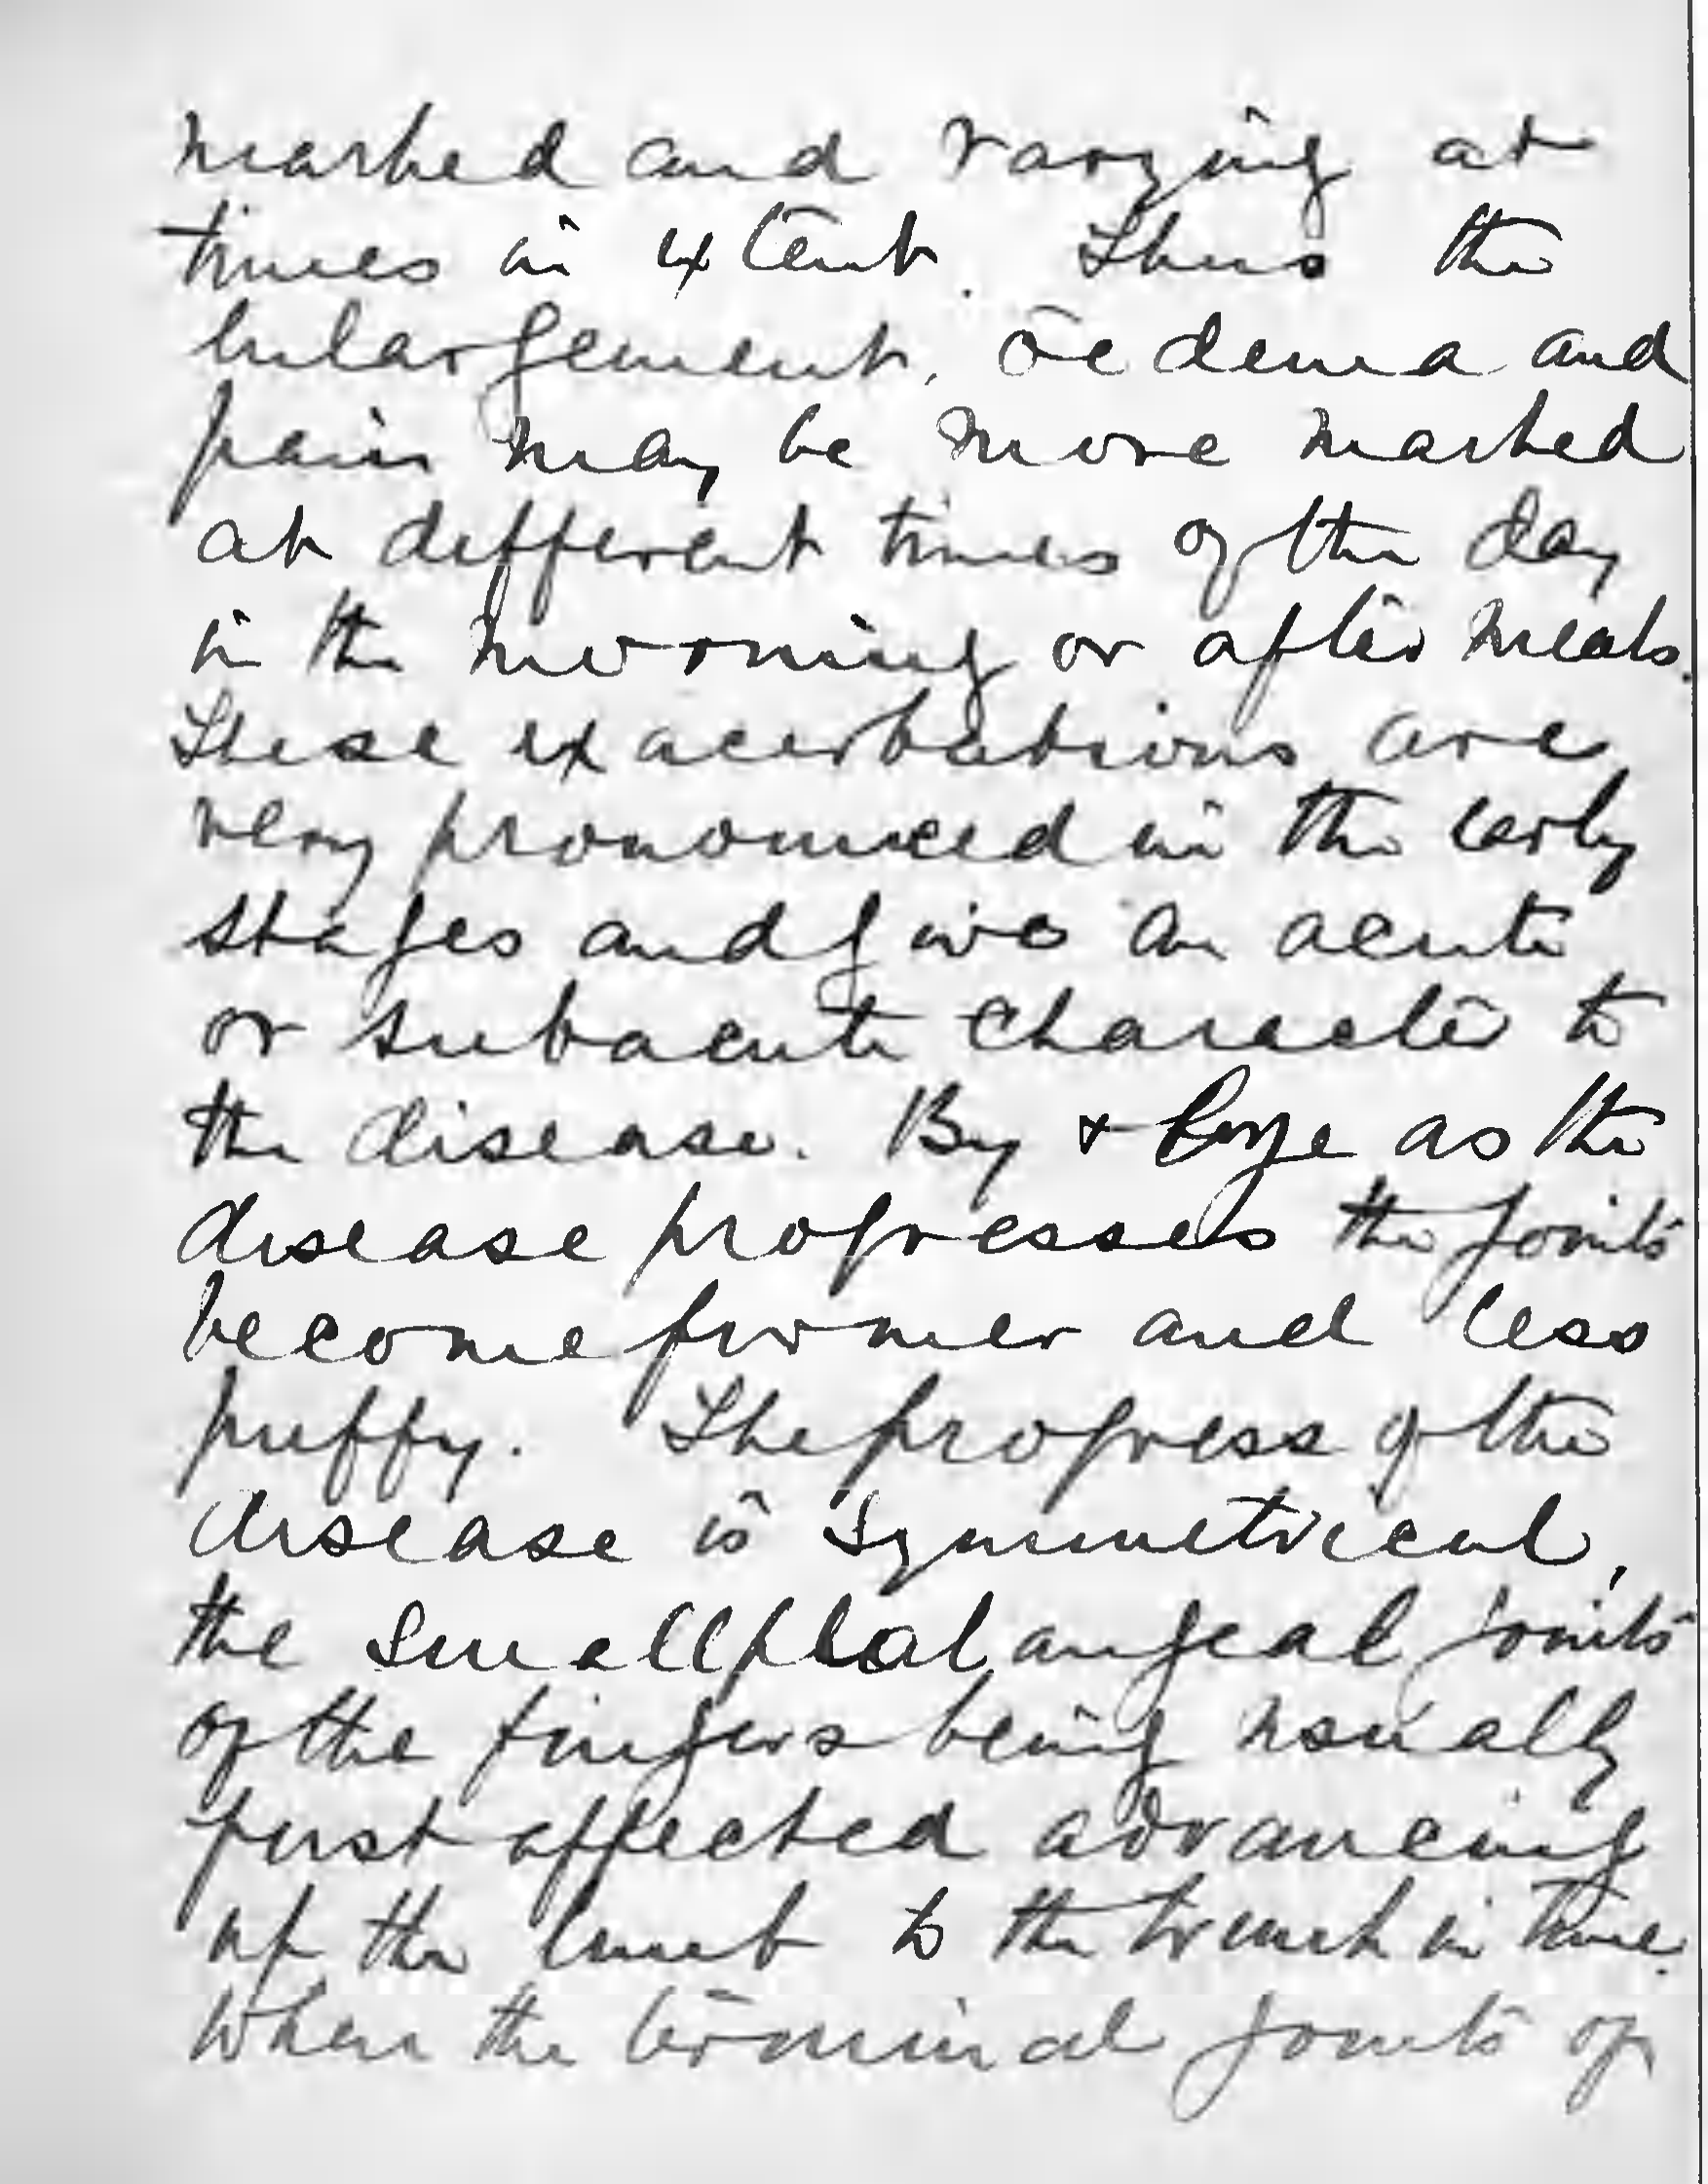 marked and varying at
times in extent. Thus the
enlargement, oedema and
pain may be more marked
at different times of the day
in the morning or after meals.
These exacerbations are
very pronounced in the early
stages and give an acute
or subacute character to
the disease. By & large as the
disease progresses the joints
become firmer and less
puffy. The progress of the
disease is symmetrical,
the small phalangeal joints
of the fingers being usually
first affected advancing
up the limb to the trunk in time.
When the terminal joints of